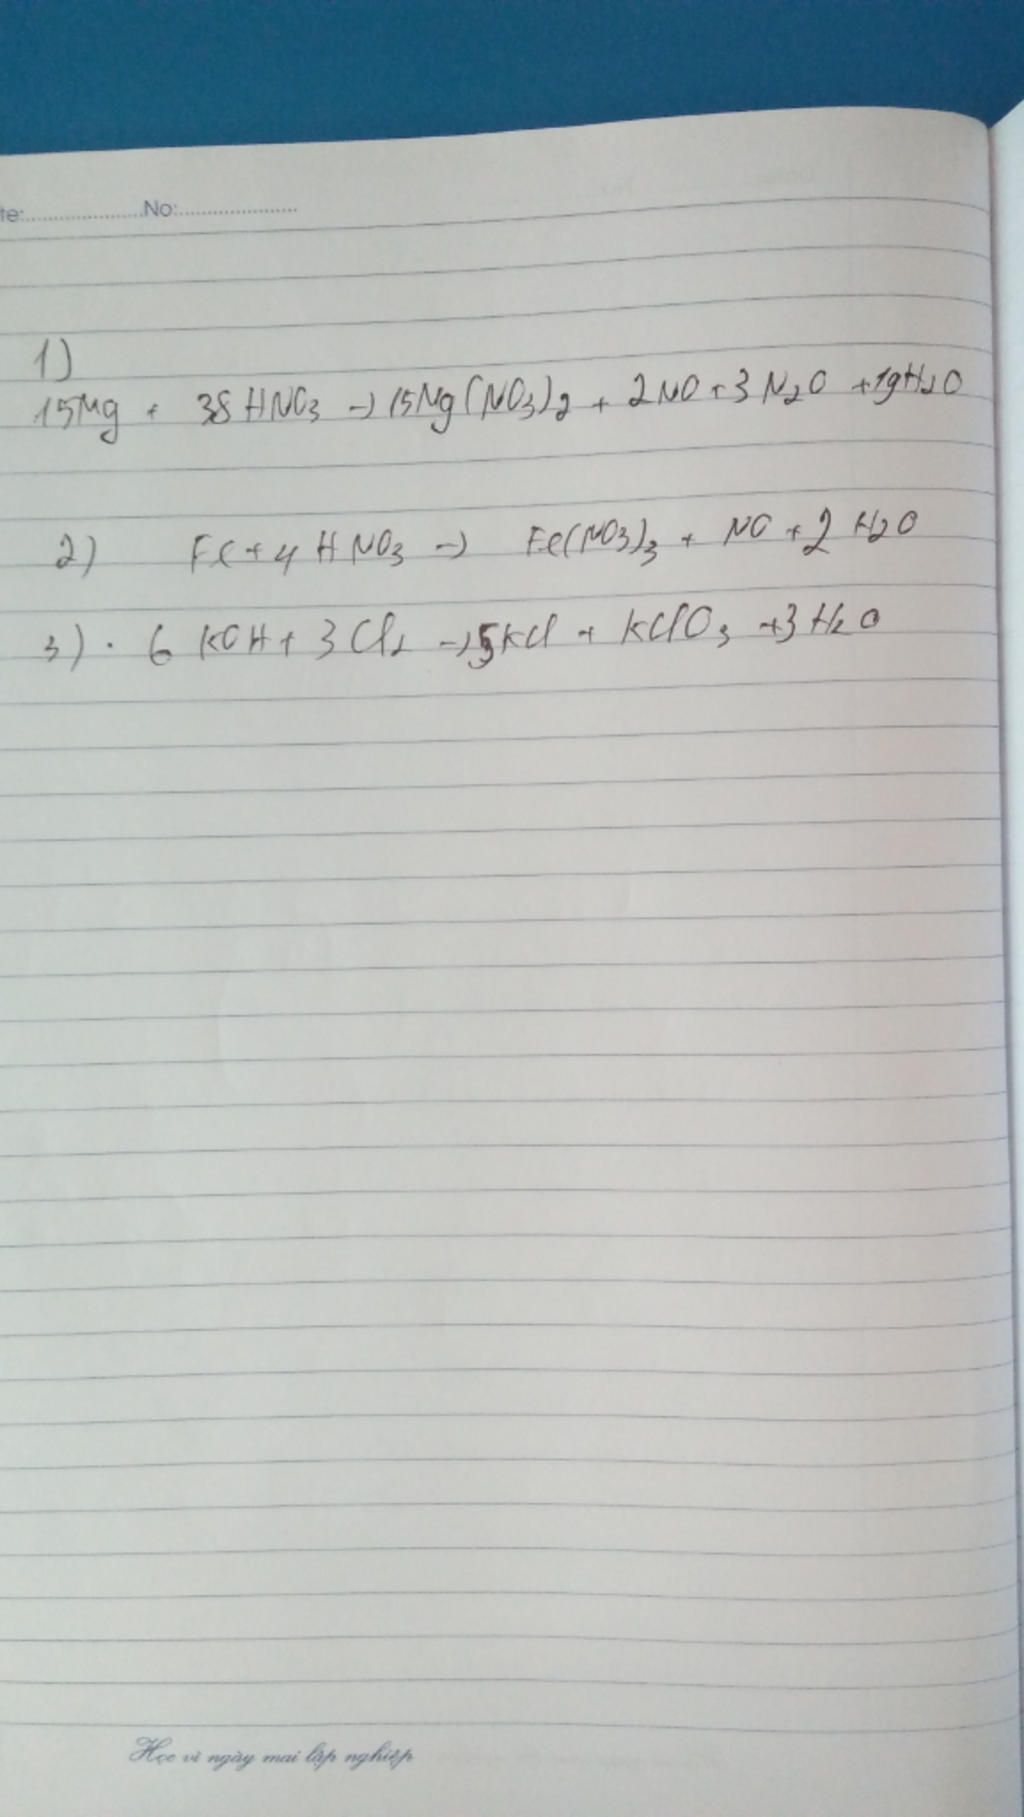 te:......................No:.....................
1)
15Mg + 38 HNO3 → 15Mg(NO3)2 + 2NO + 3 N2O + 19H2O
2) Fe + 4 HNO3 → Fe(NO3)3 + NO + 2 H2O
3) . 6 KOH + 3 Cl2 → 5KCl + KClO3 + 3 H2O
Học vì ngày mai lập nghiệp